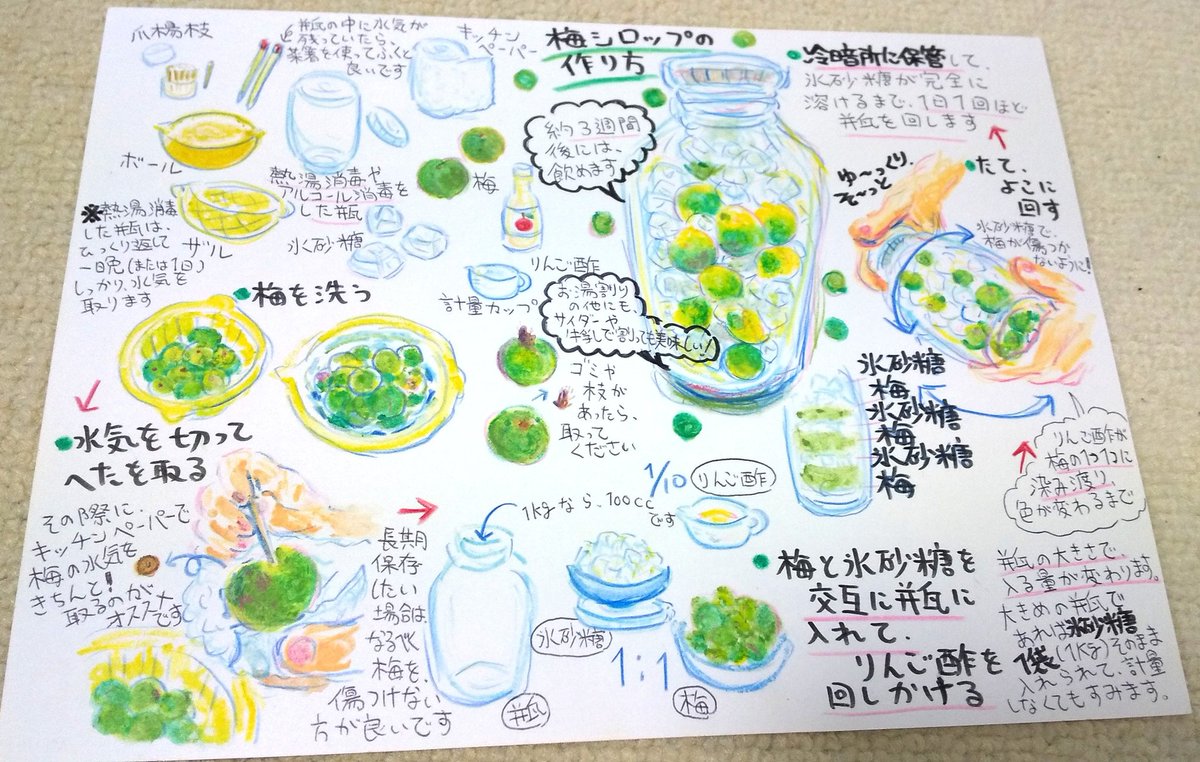 梅シロップの
作り方
爪楊枝
瓶の中に水気が
残っていたら、
菜箸を使ってふくと
良いです
キッチン
ペーパー
ボール
ザル
熱湯消毒や
アルコール消毒を
した瓶
※熱湯消毒
した瓶は、
ひっくり返して
一晩(または1日)
しっかり水気を
取ります
氷砂糖
梅
りんご酢
計量カップ
約3週間
後には、
飲めます
お湯割り
の他にも、
サイダーや
牛乳で割っても美味しい!
梅を洗う
ゴミや
枝が
あったら、
取って
ください
水気を切って
へたを取る
その際に、
キッチンペーパーで
梅の水気を
きちんと!
取るのが
オススメです
長期
保存
したい
場合は、
なるべく
梅を、
傷つけない
方が良いです
1/10 りんご酢
1kgなら、100cc
です
瓶
氷砂糖
1:1
梅
梅と氷砂糖を
交互に瓶に
入れて、
りんご酢を
回しかける
瓶の大きさで
入る量が変わります。
大きめの瓶で
あれば氷砂糖
1袋(1kg)そのまま
入れられて、計量
しなくてもすみます。
氷砂糖
梅
氷砂糖
梅
氷砂糖
梅
りんご酢が
梅の1つ1つに
染み渡り、
色が変わるまで
たて、
よこに
回す
ゆ〜っくり、
そ〜っと
氷砂糖で、
梅が傷つか
ないように!
冷暗所に保管して、
氷砂糖が完全に
溶けるまで、1日1回ほど
瓶を回します